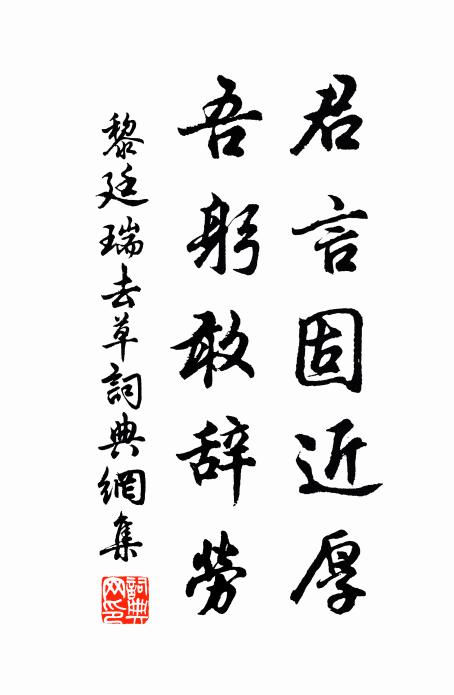 君言固近厚
吾躬敢辞勞
黎廷瑞去草詞典網集
詞典網印